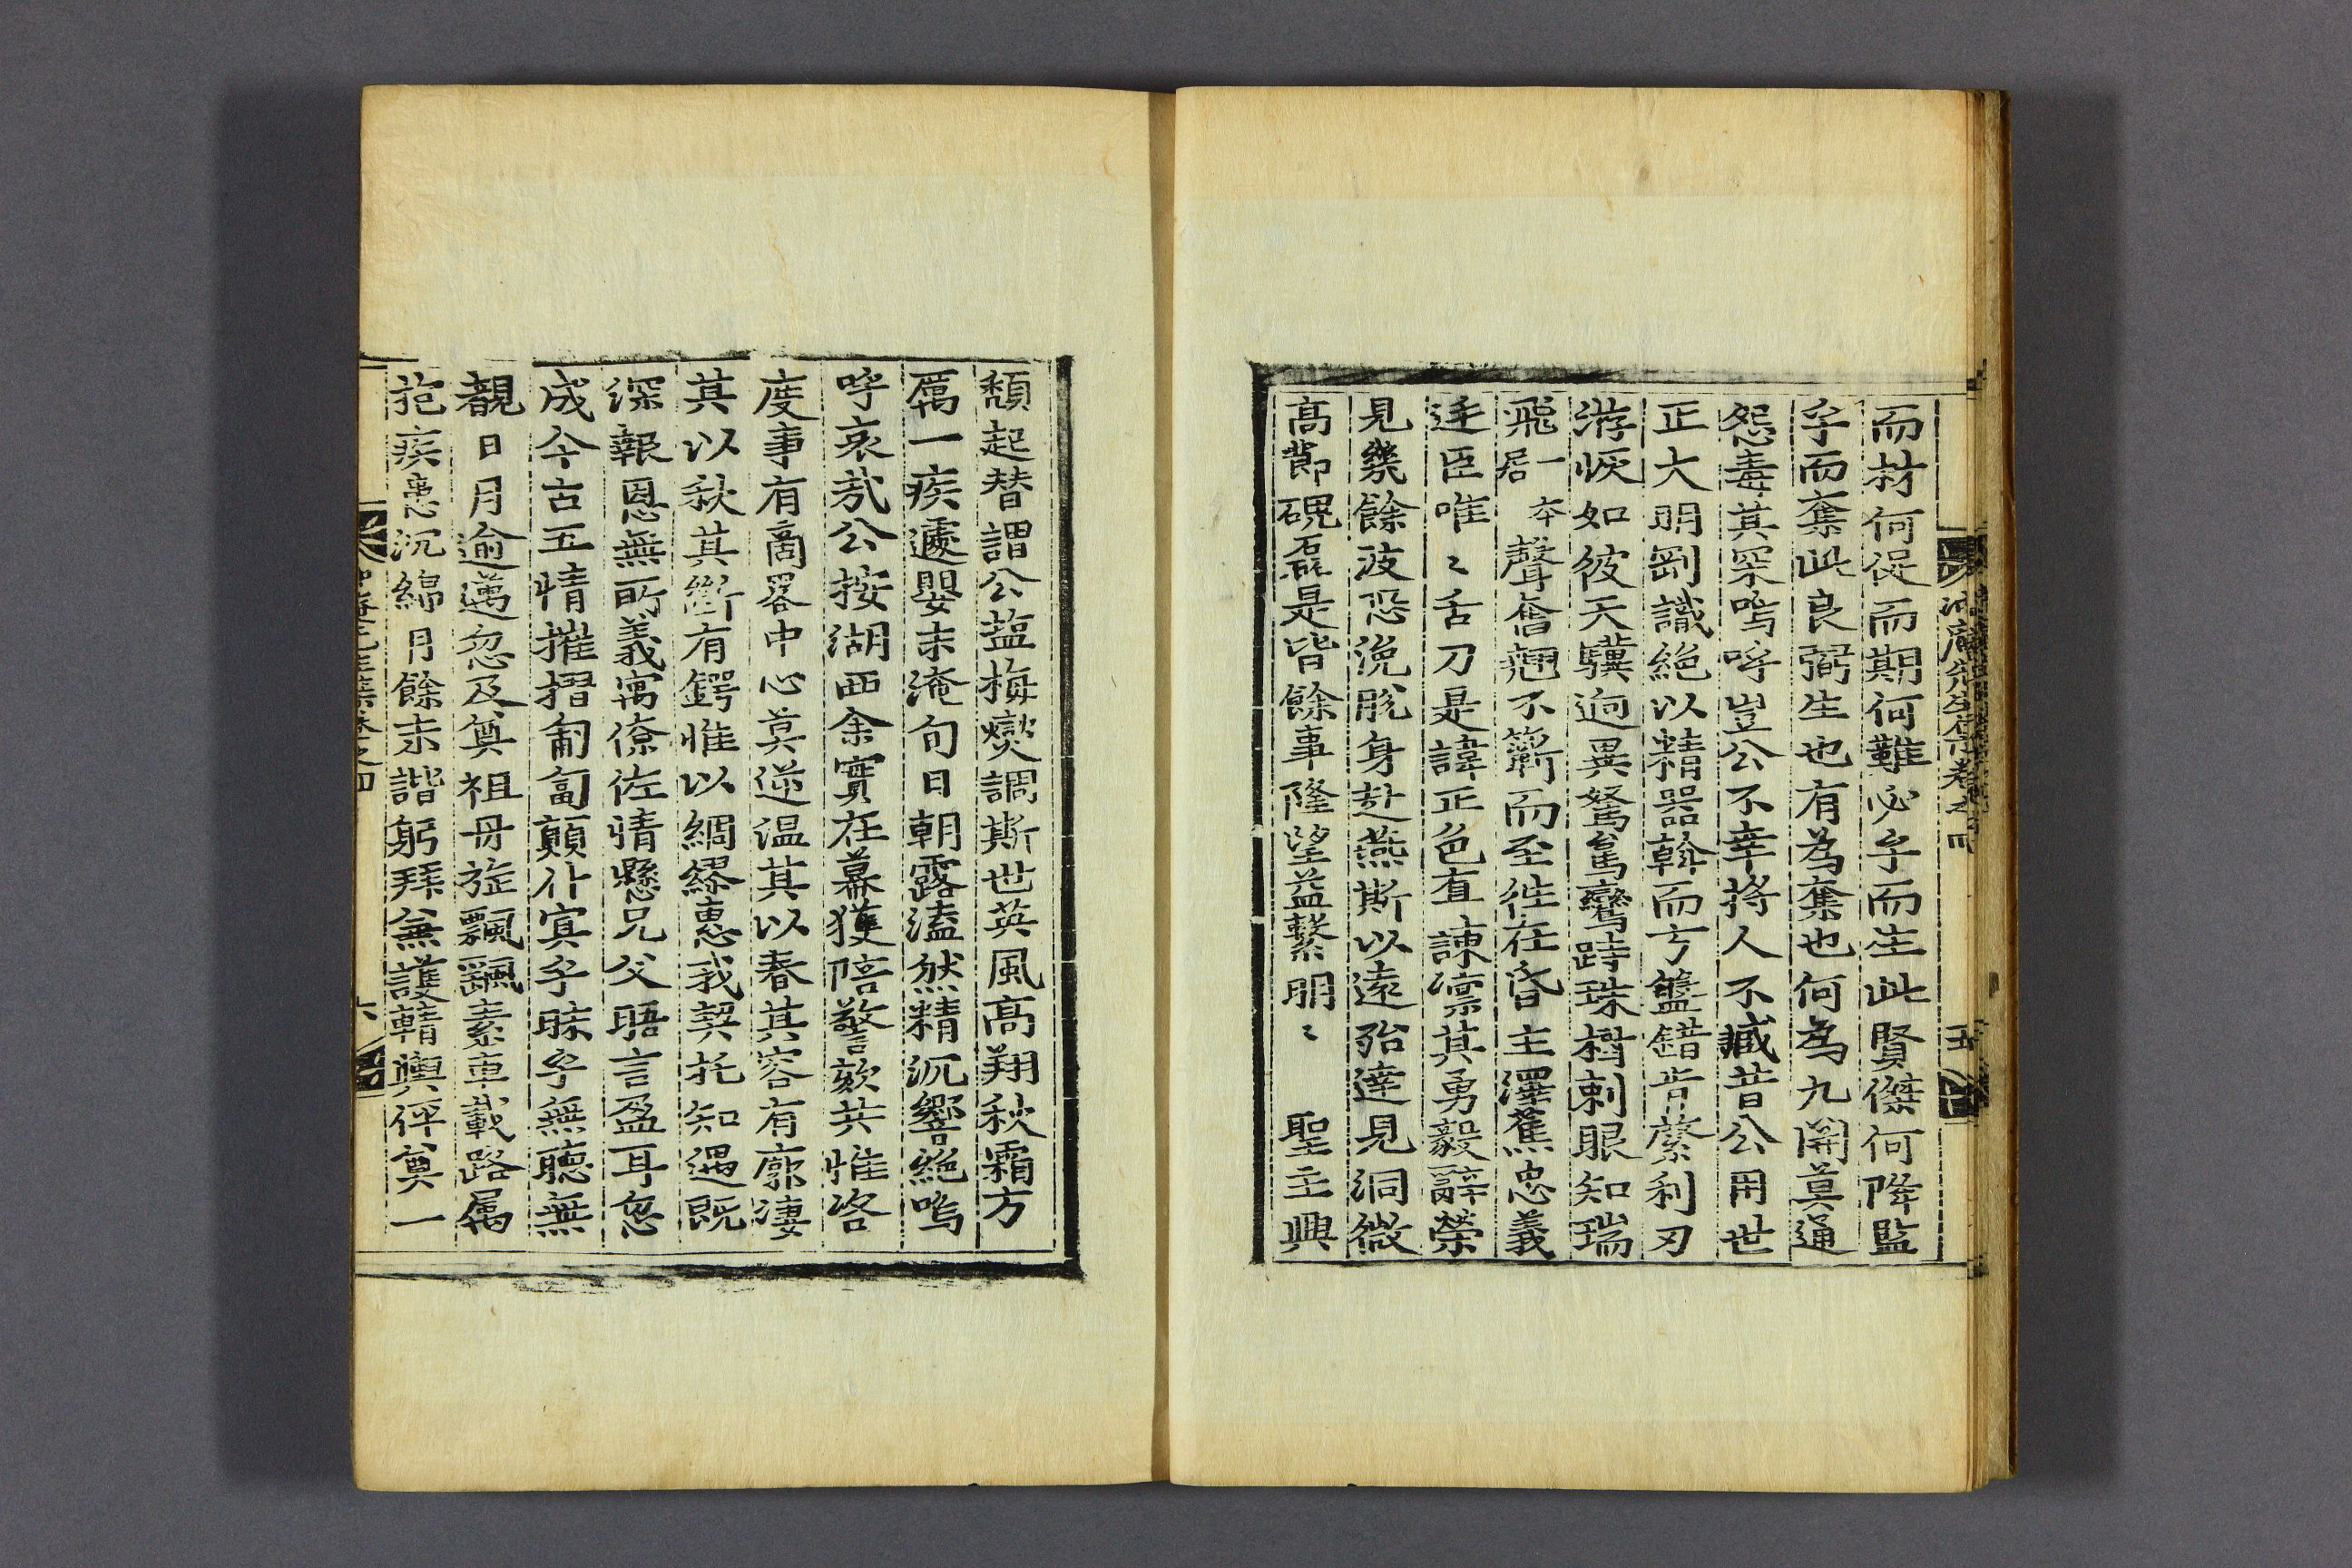 而材何從而期何難必乎而生此賢傑何降監
乎而奪此良弼生也有為奪也何為九閽莫通
怨毒其罙嗚呼豈公不幸將人不臧昔公用世
正大明剛識絕以精器斡而方盤錯肯綮利刃
游恢如彼天驥逈異駑駘鸞跱珠樹刺眼知瑞
飛一本居聲奮翹不蘄而至徃在昏主澤蕉忠義
廷臣唯〻舌刀是諱正色直諫凛其勇毅辭榮
見幾餘波恐浼脫身赴燕斯以遠殆達見洞微
高節磈磊是皆餘事隆望益繫明〻　聖主興
頹起替謂公塩梅爕調斯世英風高翔秋霜方
厲一疾遽嬰未淹旬日朝露溘然精沉響絶嗚
呼哀哉公按湖西余實在幕獲陪警欬共惟咨
度事有商畧中心莫逆温其以春其容有廓凄
其以秋其斷有鍔惟以綢繆惠我契托知遇既
深報恩無所義寓僚佐情懸兄父晤言盈耳忽
成今古五情摧摺匍匐顛仆寘乎昧乎無聽無
覩日月逾邁忽及奠祖丹旌飄飄素車載路属
抱疾患沉綿月餘未諧躬拜兼護輤輿伻奠一
六